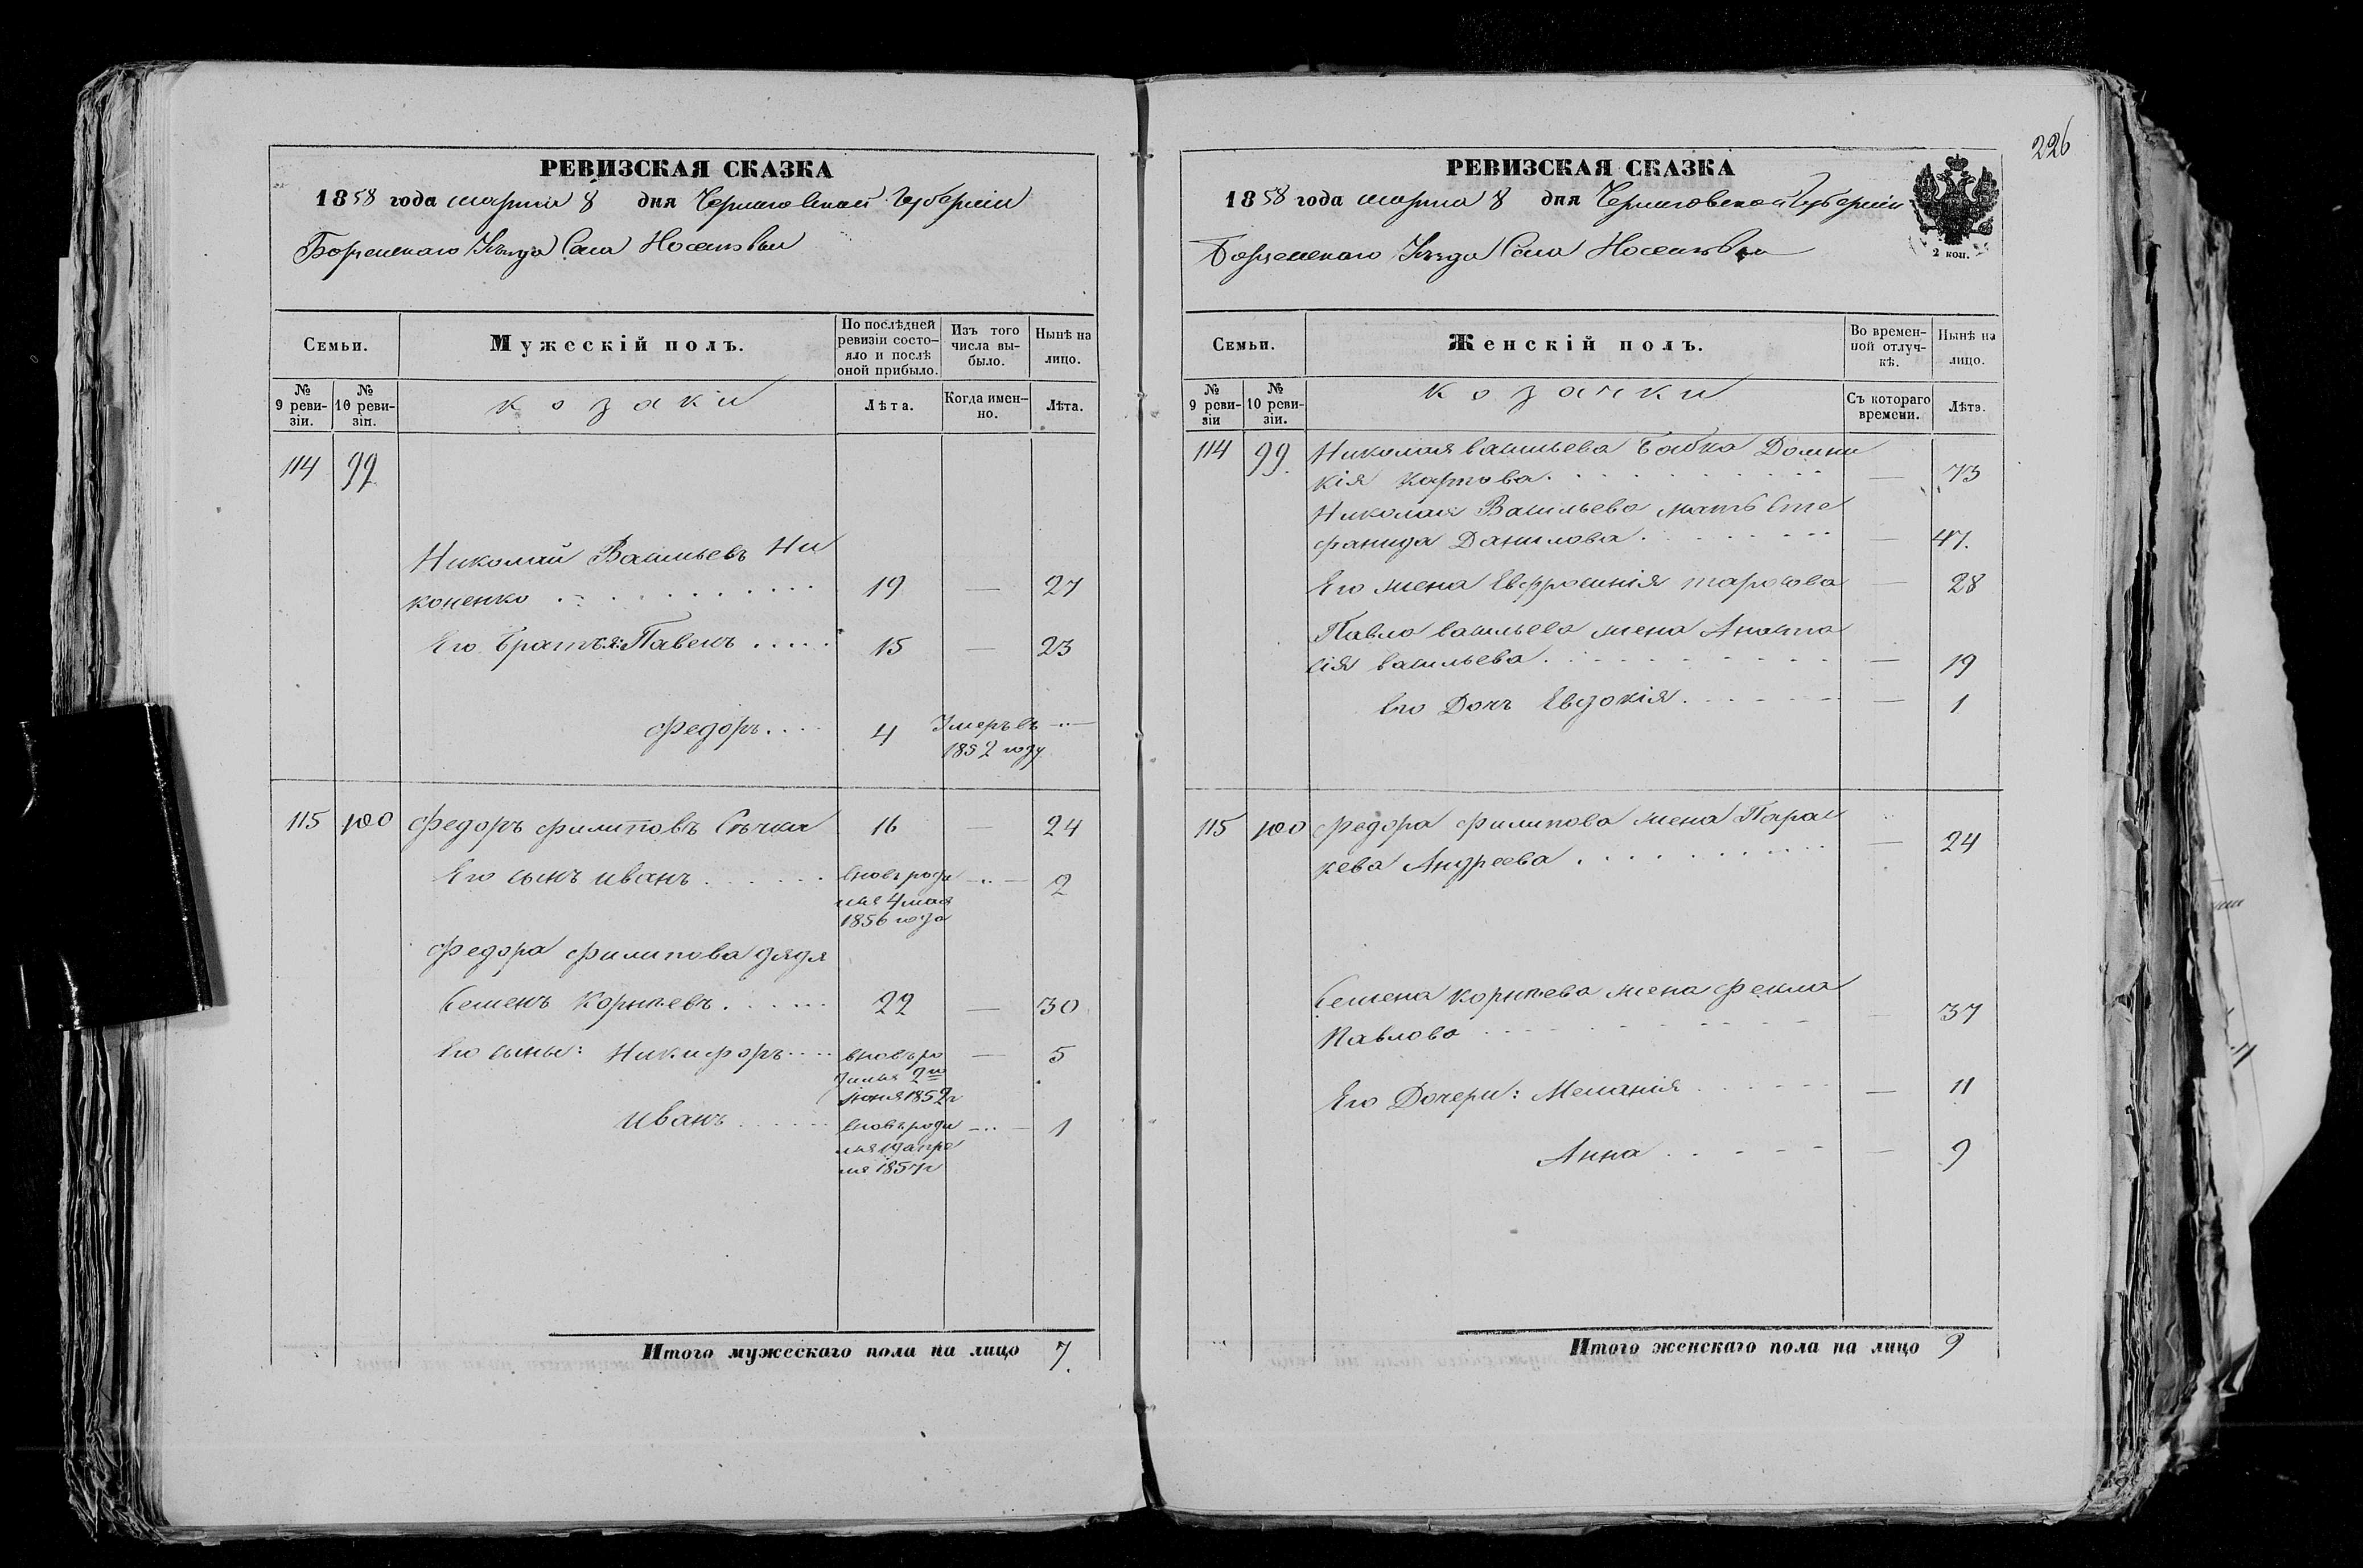 226
РЕВИЗСКАЯ СКАЗКА
1858 года марта 8 дня Черниговской Губерніи
Борзенскаго Уѣзда Села Носелевки
Семьи.
Мужескій полъ.
По послѣдней ревизіи состояло и послѣ оной прибыло.
Изъ того числа выбыло.
Нынѣ на лицо.
№ 9 ревизіи.
№ 10 ревизіи.
козаки
Лѣта.
Когда именно.
Лѣта.
114 99
Николай Васильевъ Ни
коненко 19 — 27
Его братья: Павелъ 15 — 23
Федоръ 4 Умеръ въ —
1852 году
115 100 Федоръ Филиповъ 16 — 24
Его сынъ Иванъ вновь роди — 2
лся 4 мая
1856 года
Федора Филипова дядя
Семенъ Корнѣевъ 22 — 30
Его сыны: Никифоръ вновь ро — 5
дился 2го
июня 1852 г
Иванъ вновь роди — 1
лся 19 апре
ля 1857 г
Итого мужескаго пола на лицо 7.
РЕВИЗСКАЯ СКАЗКА
1858 года марта 8 дня Черниговской Губерніи
Борзенскаго Уѣзда Села Носелевки
2 коп.
Семьи.
Женскій полъ.
Во временной отлучкѣ.
Нынѣ на лицо.
№ 9 ревизіи
№ 10 ревизіи.
козачки
Съ котораго времени.
Лѣта.
114 99. Николая Васильева бабка Домни
кія Карпова. — 73
Николая Васильева мать Сте
фанида Данилова. — 47.
Его жена Евфросинія Тарасова — 28
Павла Васильева жена Анаста
сія Васильева. — 19
Его Дочь Евдокія. — 1
115 100 Федора Филипова жена Парас
кева Андреева — 24
Семена Корнѣева жена Фекла
Павлова — 37
Его Дочери: Меланія — 11
Анна — 9
Итого женскаго пола на лицо 9